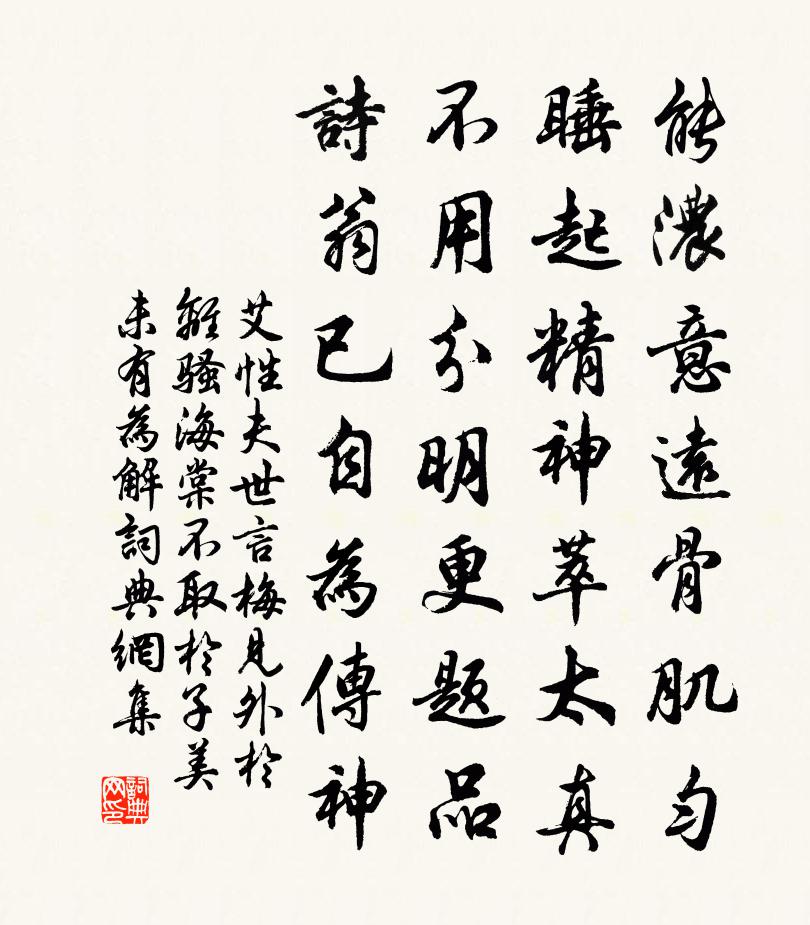 能濃意遠骨肌勻
睡起精神萃太真
不用分明更題品
詩翁已自為傳神
艾性夫世言梅見外於
離騷海棠不取於子美
未有為解詞典網集
詞典
网印